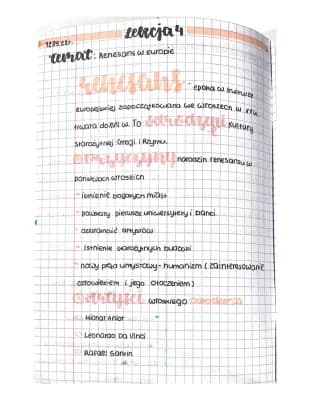 Lekcja 4
12.09.22r.
Temat: Renesans w Europie
renesans - epoka w kulturze
europejskiej zapoczątkowana we włoszech w XIV w.
trwała do XVII w. To odrodzenie kultury
starożytnej Grecji i Rzymu.
Przyczyny narodzin renesansu w
państwach włoskich
- istnienie bogatych miast
- powstały pierwsze uniwersytety i banki
- działalność artystów
- istnienie starożytnych budowli
- nowy prąd umysłowy - humanizm (zainteresowanie
człowiekiem i jego otoczeniem)
Artyści włoskiego Odrodzenia
Michał Anioł
Leonardo Da Vinci
Rafael Santin